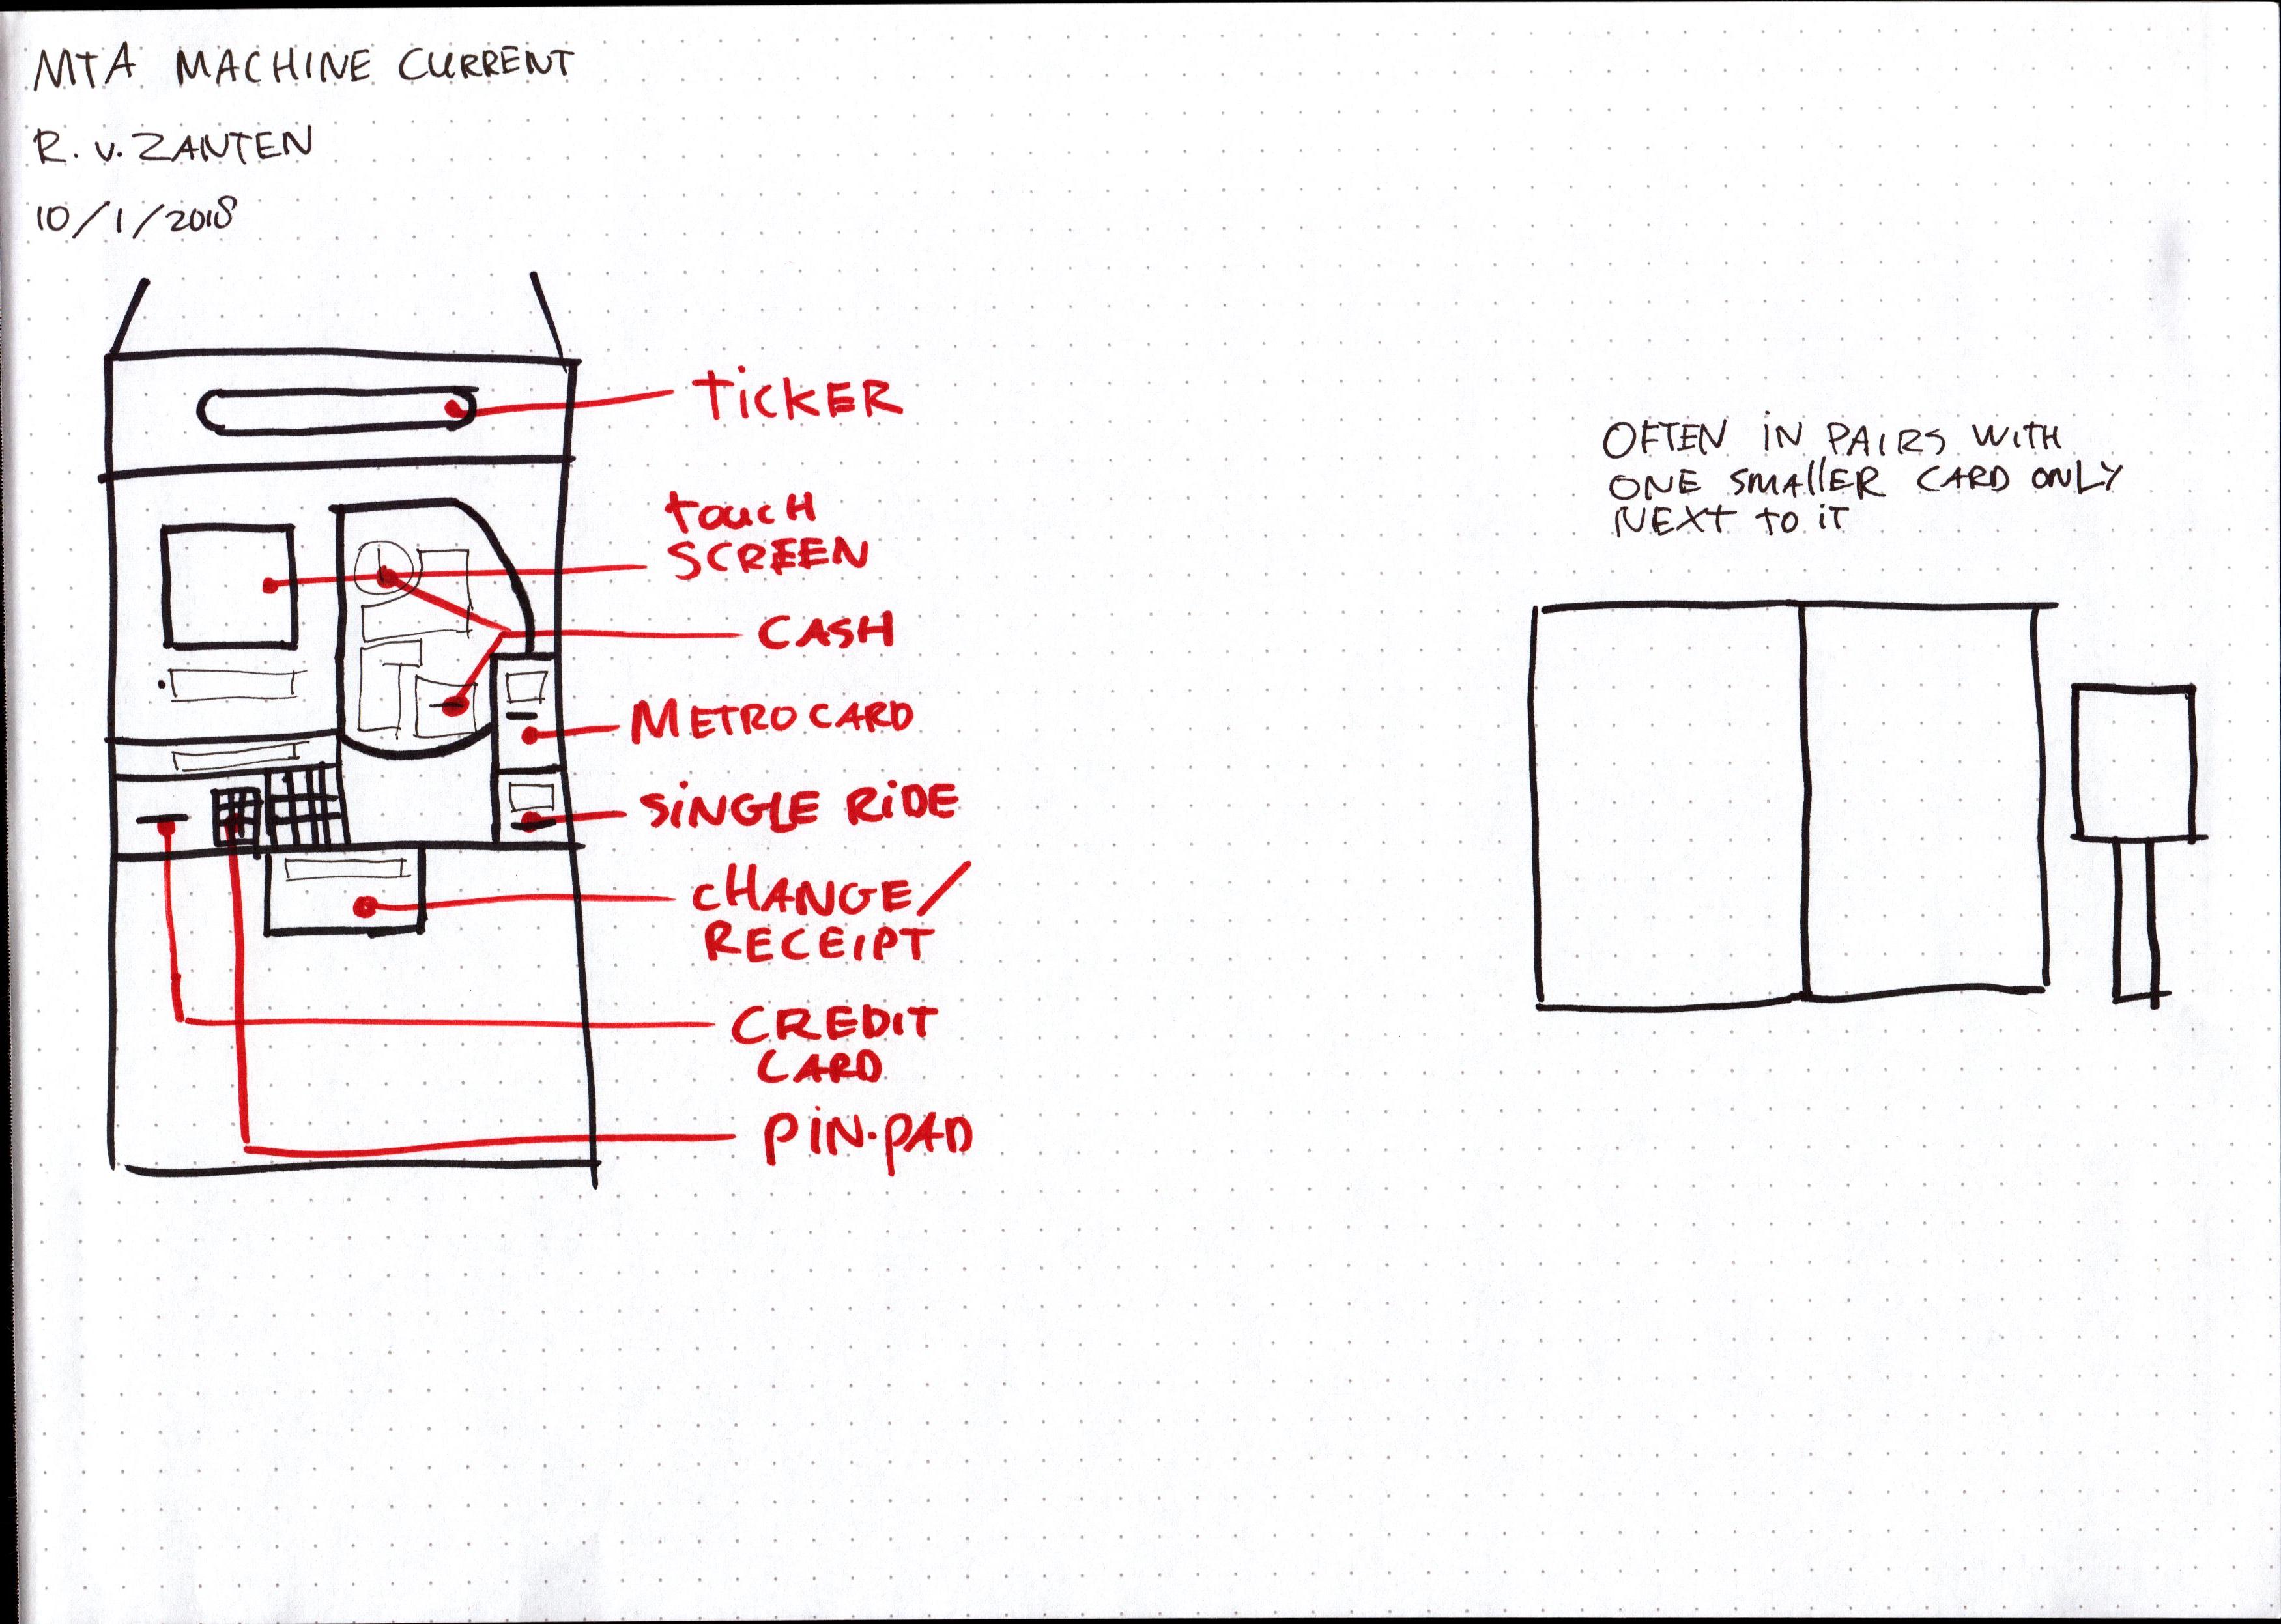 MTA MACHINE CURRENT
R. v. ZANTEN
10/1/2018
TICKER
TOUCH
SCREEN
CASH
METROCARD
SINGLE RIDE
CHANGE/
RECEIPT
CREDIT
CARD
PIN-PAD
OFTEN IN PAIRS WITH
ONE SMALLER CARD ONLY
NEXT TO IT